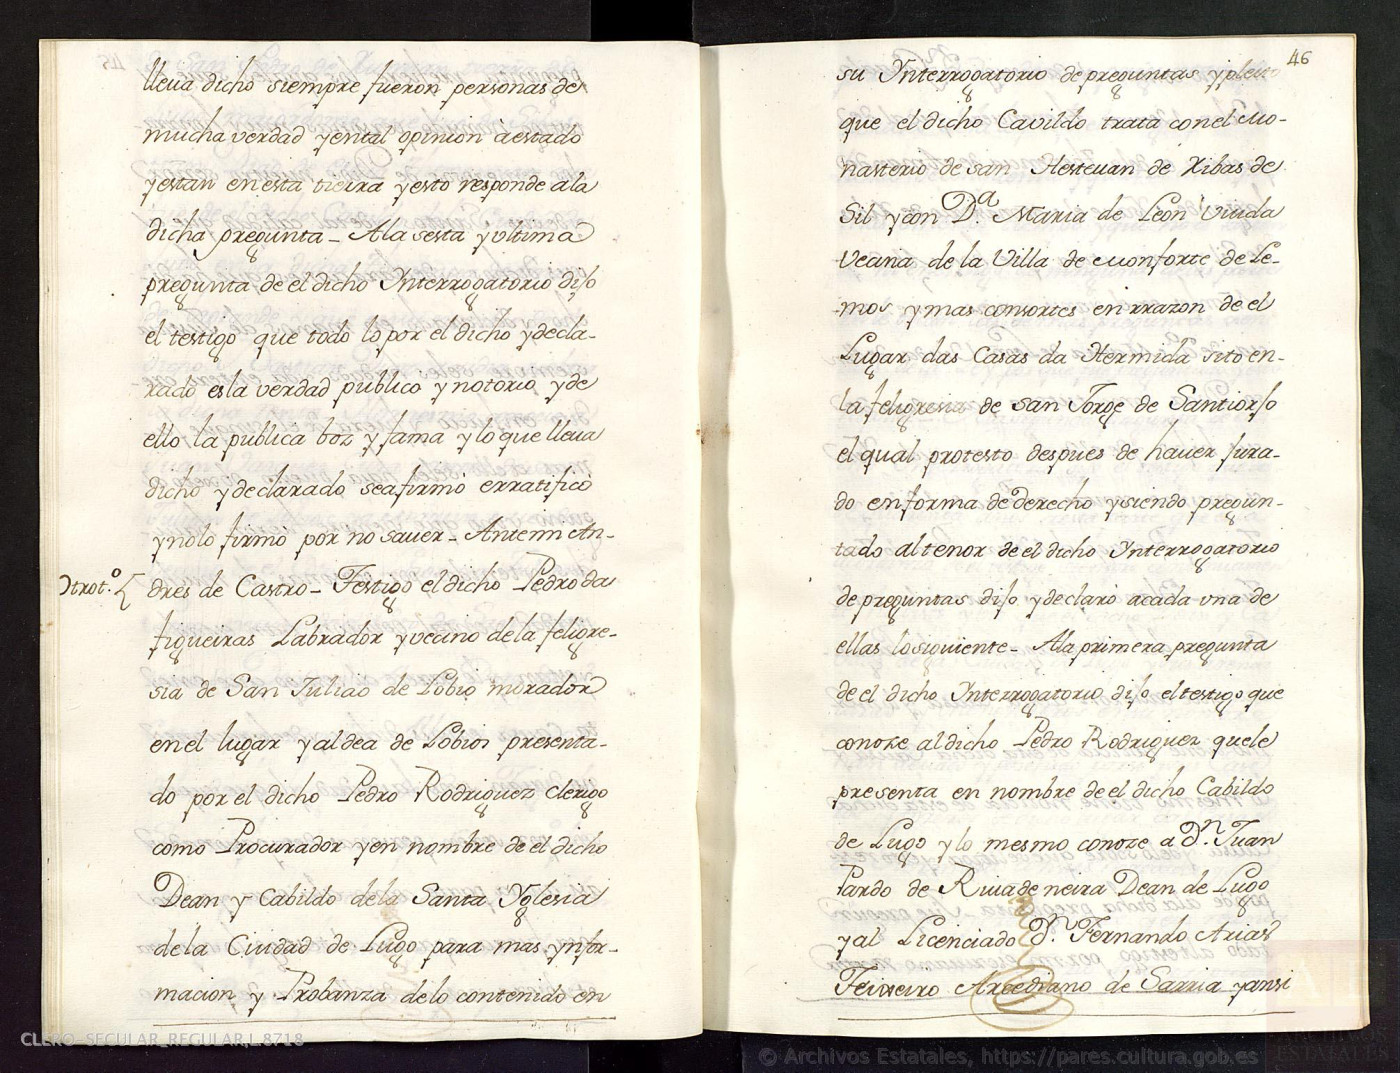 lleua dicho siempre fueron personas de
mucha verdad y en tal opinion à estado
y estan en esta tierra y esto responde a la
dicha pregunta - A la sesta y vltima
pregunta de el dicho Ynterrogatorio dijo
el testigo que todo lo por el dicho y decla-
rado es la verdad publico y notorio y de
ello la publica boz y fama y lo que lleua
dicho y declarado se afirmò erratificò
y no lo firmò por no sauer - Antemi An-
Otrot.º
dres de Castro - Testigo el dicho Pedro da
figueiras Labrador y vecino de la feligre-
sia de San Juliao de Lobio morador
en el lugar y aldea de Lobios presenta-
do por el dicho Pedro Rodriguez clerigo
como Procurador y en nombre de el dicho
Dean y Cabildo de la Santa Yglesia
de la Ciudad de Lugo para mas ynfor-
macion y Probanza de lo contenido en
46
su Ynterrogatorio de preguntas y pleito
que el dicho Cavildo trata con el Mo-
nasterio de San Hesteuan de Ribas de
Sil y con D.ª Maria de Leon Viuda
Vecina de la Villa de Monforte de Le-
mos y mas consortes en rrazon de el
Lugar das Casas da Hermida sito en
la feligresia de San Jorge de Santiorjo
el qual protesto despues de hauer jura-
do en forma de Derecho y siendo pregun-
tado al tenor de el dicho Ynterrogatorio
de preguntas dijo y declarò a cada vna de
ellas lo siguiente - A la primera pregunta
de el dicho Ynterrogatorio dijo el testigo que
conoze al dicho Pedro Rodriguez que le
presenta en nombre de el dicho Cabildo
de Lugo y lo mesmo conoze a D.n Juan
Pardo de Riuadeneira Dean de Lugo
y al Licenciado D.n Fernando Arias
Teixeiro Arcediano de Sarria y ansi
CLERO-SECULAR_REGULAR,L.8718
© Archivos Estatales, https://pares.cultura.gob.es
ARCHIVOS
ESTATALES